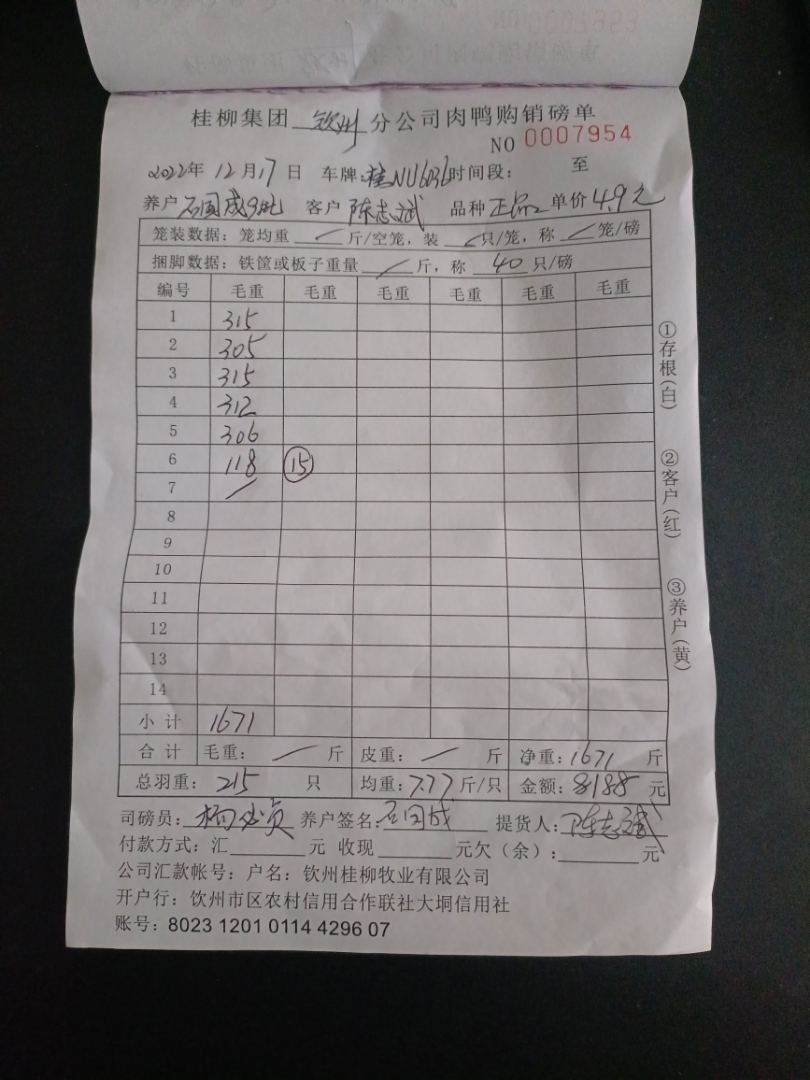 桂柳集团 钦州 分公司肉鸭购销磅单
NO 0007954
2022年 12月17日 车牌:桂NU6036 时间段: 至
养户 石国成 客户 陈志斌 品种 正品 单价 4.9元
笼装数据:笼均重 / 斤/空笼,装 / 只/笼,称 / 笼/磅
捆脚数据:铁筐或板子重量 / 斤,称 40 只/磅
编号 毛重 毛重 毛重 毛重 毛重 毛重
1 315
2 305
3 315
4 312
5 306
6 118 15
7 /
8
9
10
11
12
13
14
小 计 1671
合 计 毛重: / 斤 皮重: / 斤 净重:1671 斤
总羽重: 215 只 均重:7.77 斤/只 金额:8188 元
司磅员: 养户签名:石国成 提货人:陈志斌
付款方式:汇 元 收现 元欠(余): 元
公司汇款帐号:户名:钦州桂柳牧业有限公司
开户行:钦州市区农村信用合作联社大垌信用社
账号:8023 1201 0114 4296 07
①存根(白)
②客户(红)
③养户(黄)